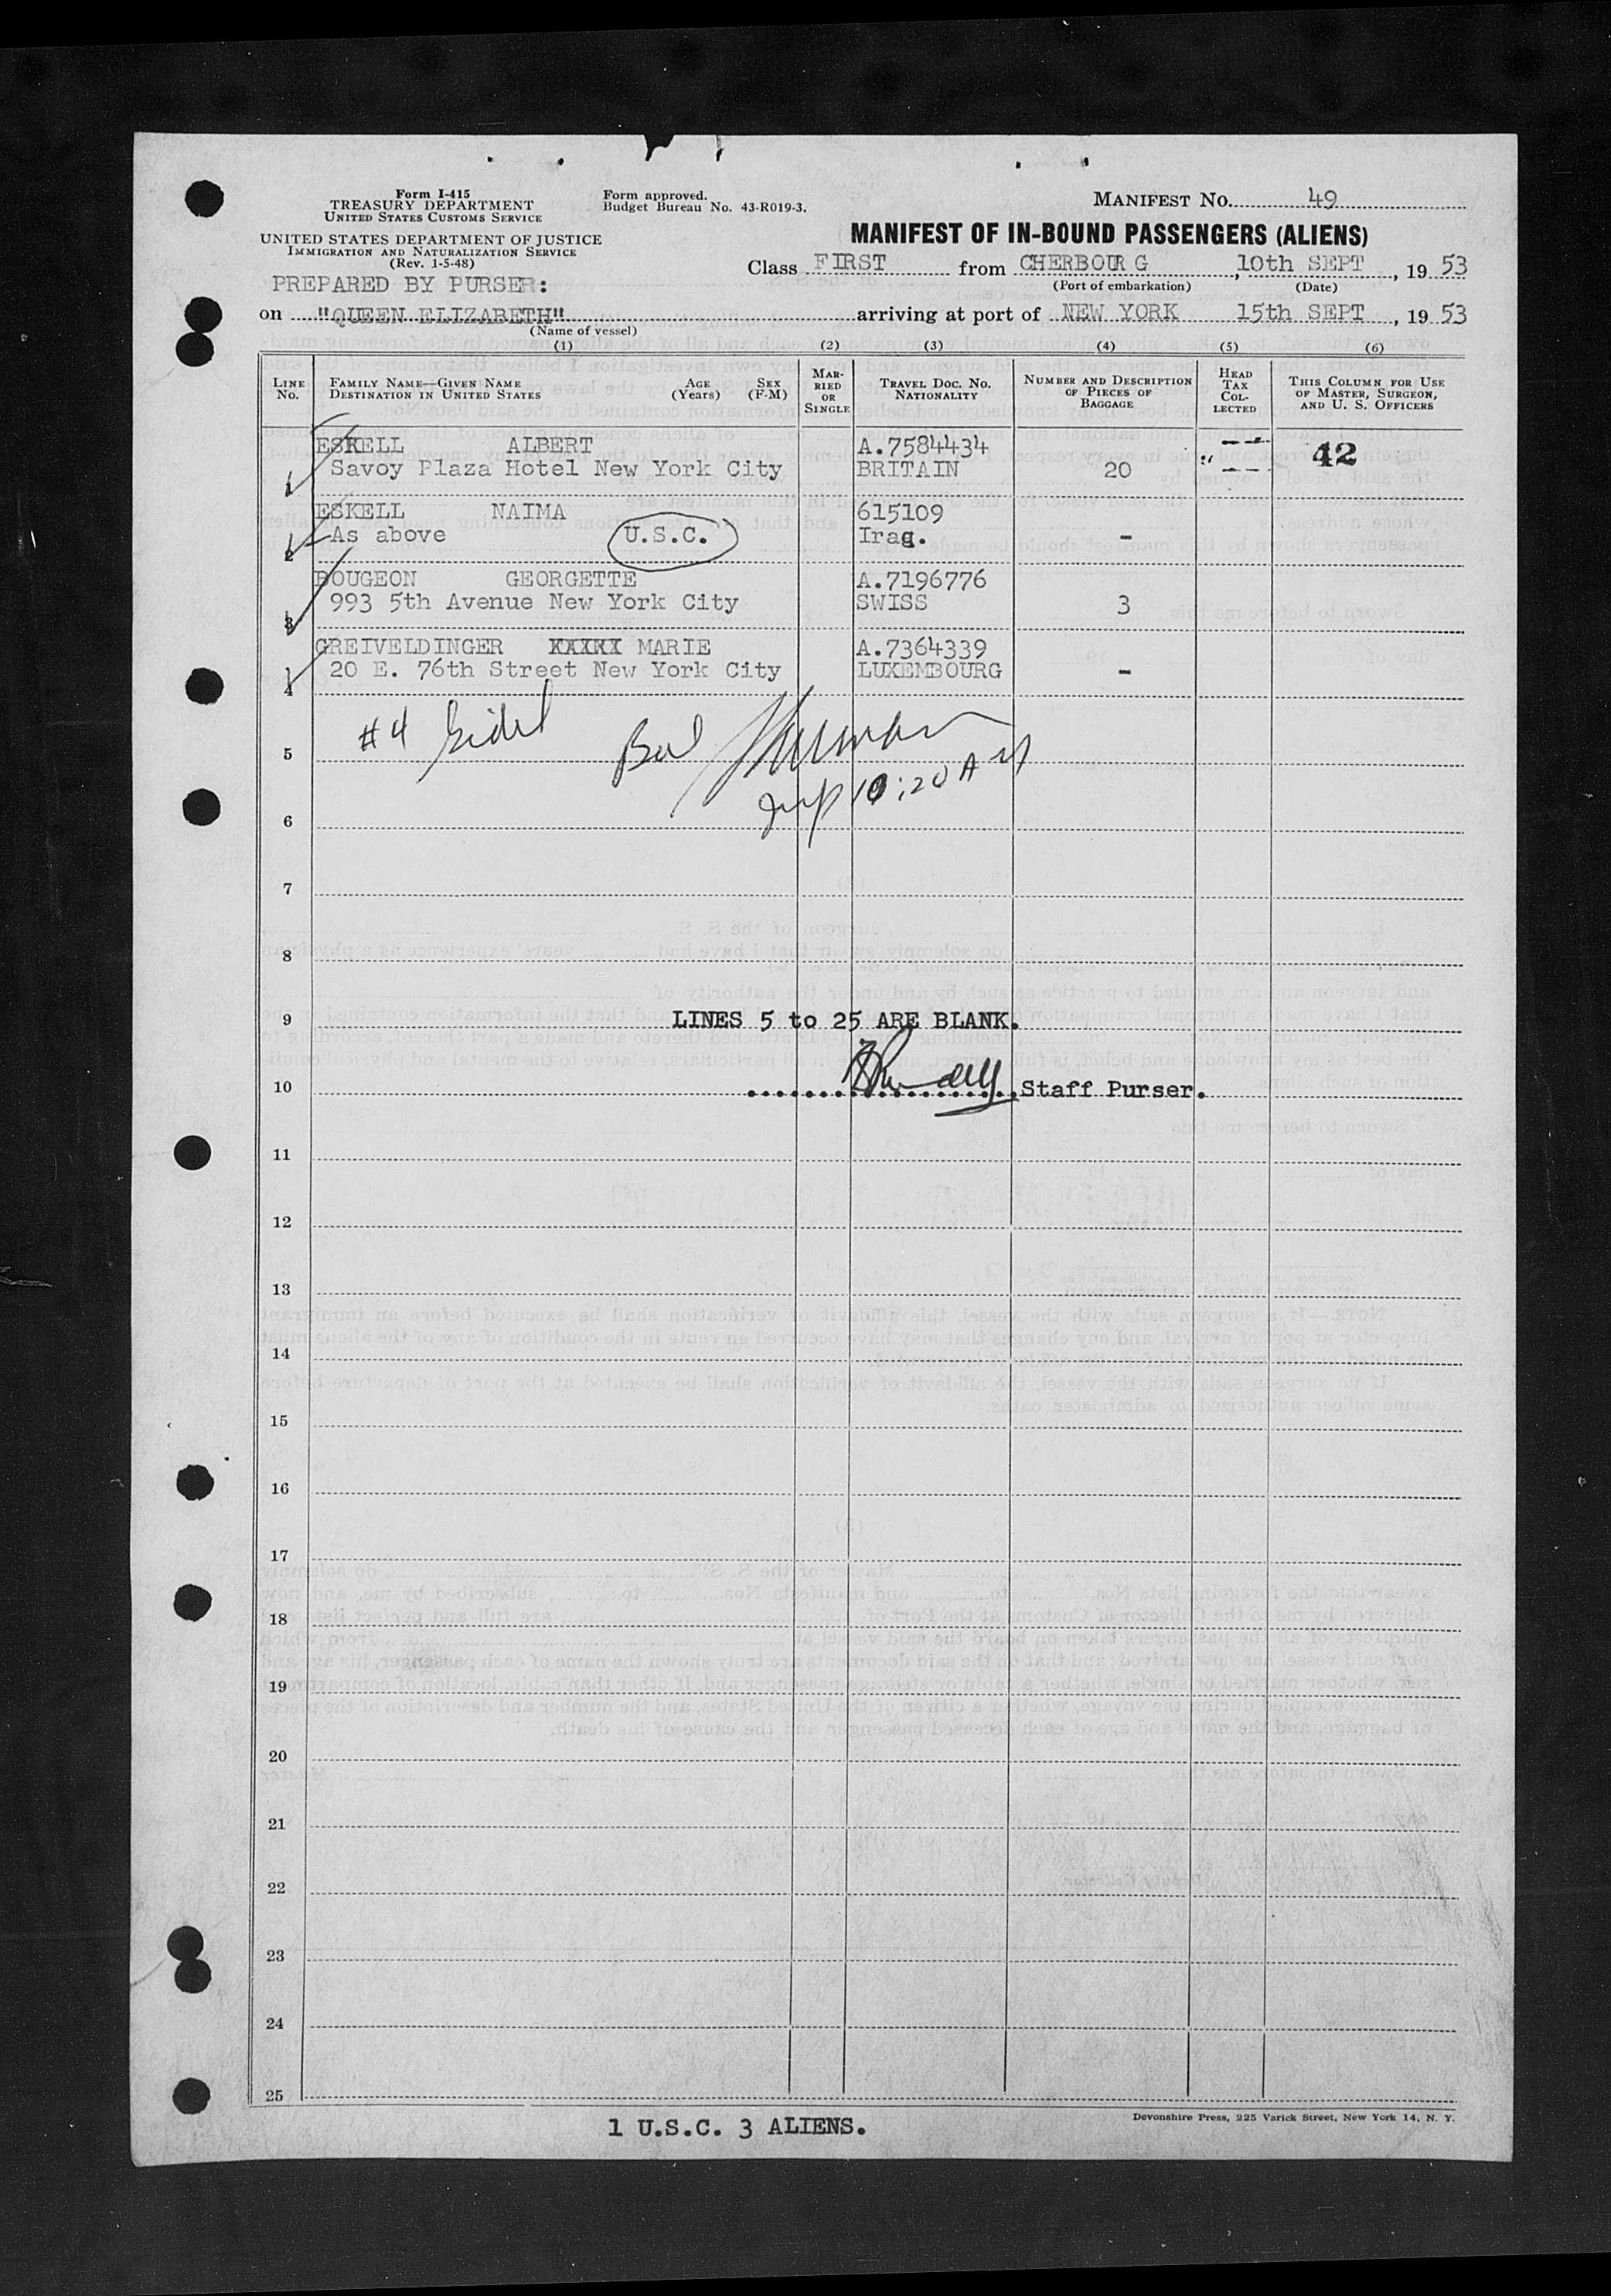 Form I-415
TREASURY DEPARTMENT
UNITED STATES CUSTOMS SERVICE
UNITED STATES DEPARTMENT OF JUSTICE
IMMIGRATION AND NATURALIZATION SERVICE
(Rev. 1-5-48)
PREPARED BY PURSER:
Form approved.
Budget Bureau No. 43-R019-3.
MANIFEST NO. 49
MANIFEST OF IN-BOUND PASSENGERS (ALIENS)
Class FIRST from CHERBOURG, 10th SEPT, 19 53
(Port of embarkation) (Date)
on "QUEEN ELIZABETH" arriving at port of NEW YORK 15th SEPT, 19 53
(Name of vessel)
(1) (2) (3) (4) (5) (6)
LINE NO.
FAMILY NAME—GIVEN NAME
DESTINATION IN UNITED STATES
AGE (Years)
SEX (F-M)
MARRIED OR SINGLE
TRAVEL DOC. NO.
NATIONALITY
NUMBER AND DESCRIPTION OF PIECES OF BAGGAGE
HEAD TAX COLLECTED
THIS COLUMN FOR USE OF MASTER, SURGEON, AND U. S. OFFICERS
ESKELL ALBERT A.7584434 42
1 Savoy Plaza Hotel New York City BRITAIN 20
ESKELL NAIMA 615109
2 As above U.S.C. Iraq. -
BOUGEON GEORGETTE A.7196776
3 993 5th Avenue New York City SWISS 3
GREIVELDINGER XXXXX MARIE A.7364339
4 20 E. 76th Street New York City LUXEMBOURG -
#4
5
10:20 AM
6
7
8
9 LINES 5 to 25 ARE BLANK.
10 Staff Purser.
11
12
13
14
15
16
17
18
19
20
21
22
23
24
25
1 U.S.C. 3 ALIENS.
Devonshire Press, 225 Varick Street, New York 14, N. Y.